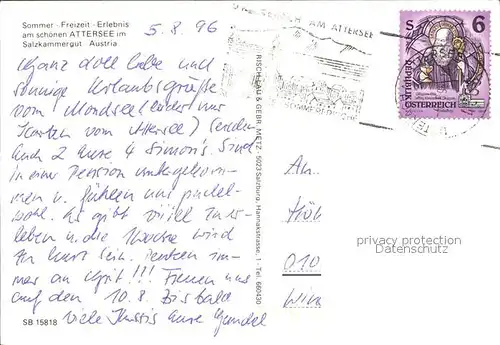 Sommer - Freizeit - Erlebnis
am schönen ATTERSEE im
Salzkammergut Austria
5.8.96
AM ATTERSEE
S 6
REPUBLIK
ÖSTERREICH
Ganz doll liebe und
sonnige Urlaubsgrüße
vom Mondsee (leider nur
Karten vom Attersee) senden
Euch 2 Eure 4 Simon's. Sind
in einer Pension untergekom-
men u. fühlen uns pudel-
wohl. Es gibt viel zu er-
leben u. die Woche wird
zu kurz sein. Denken im-
mer an Euch!!! Freuen uns
auf den 10.8. Bis bald
viele Bussis Eure
RISCHLAU & GEBR. METZ, 5023 Salzburg, Hannakstrasse, 1 - Tel. 660430
An
010
privacy protection
Datenschutz
SB 15818